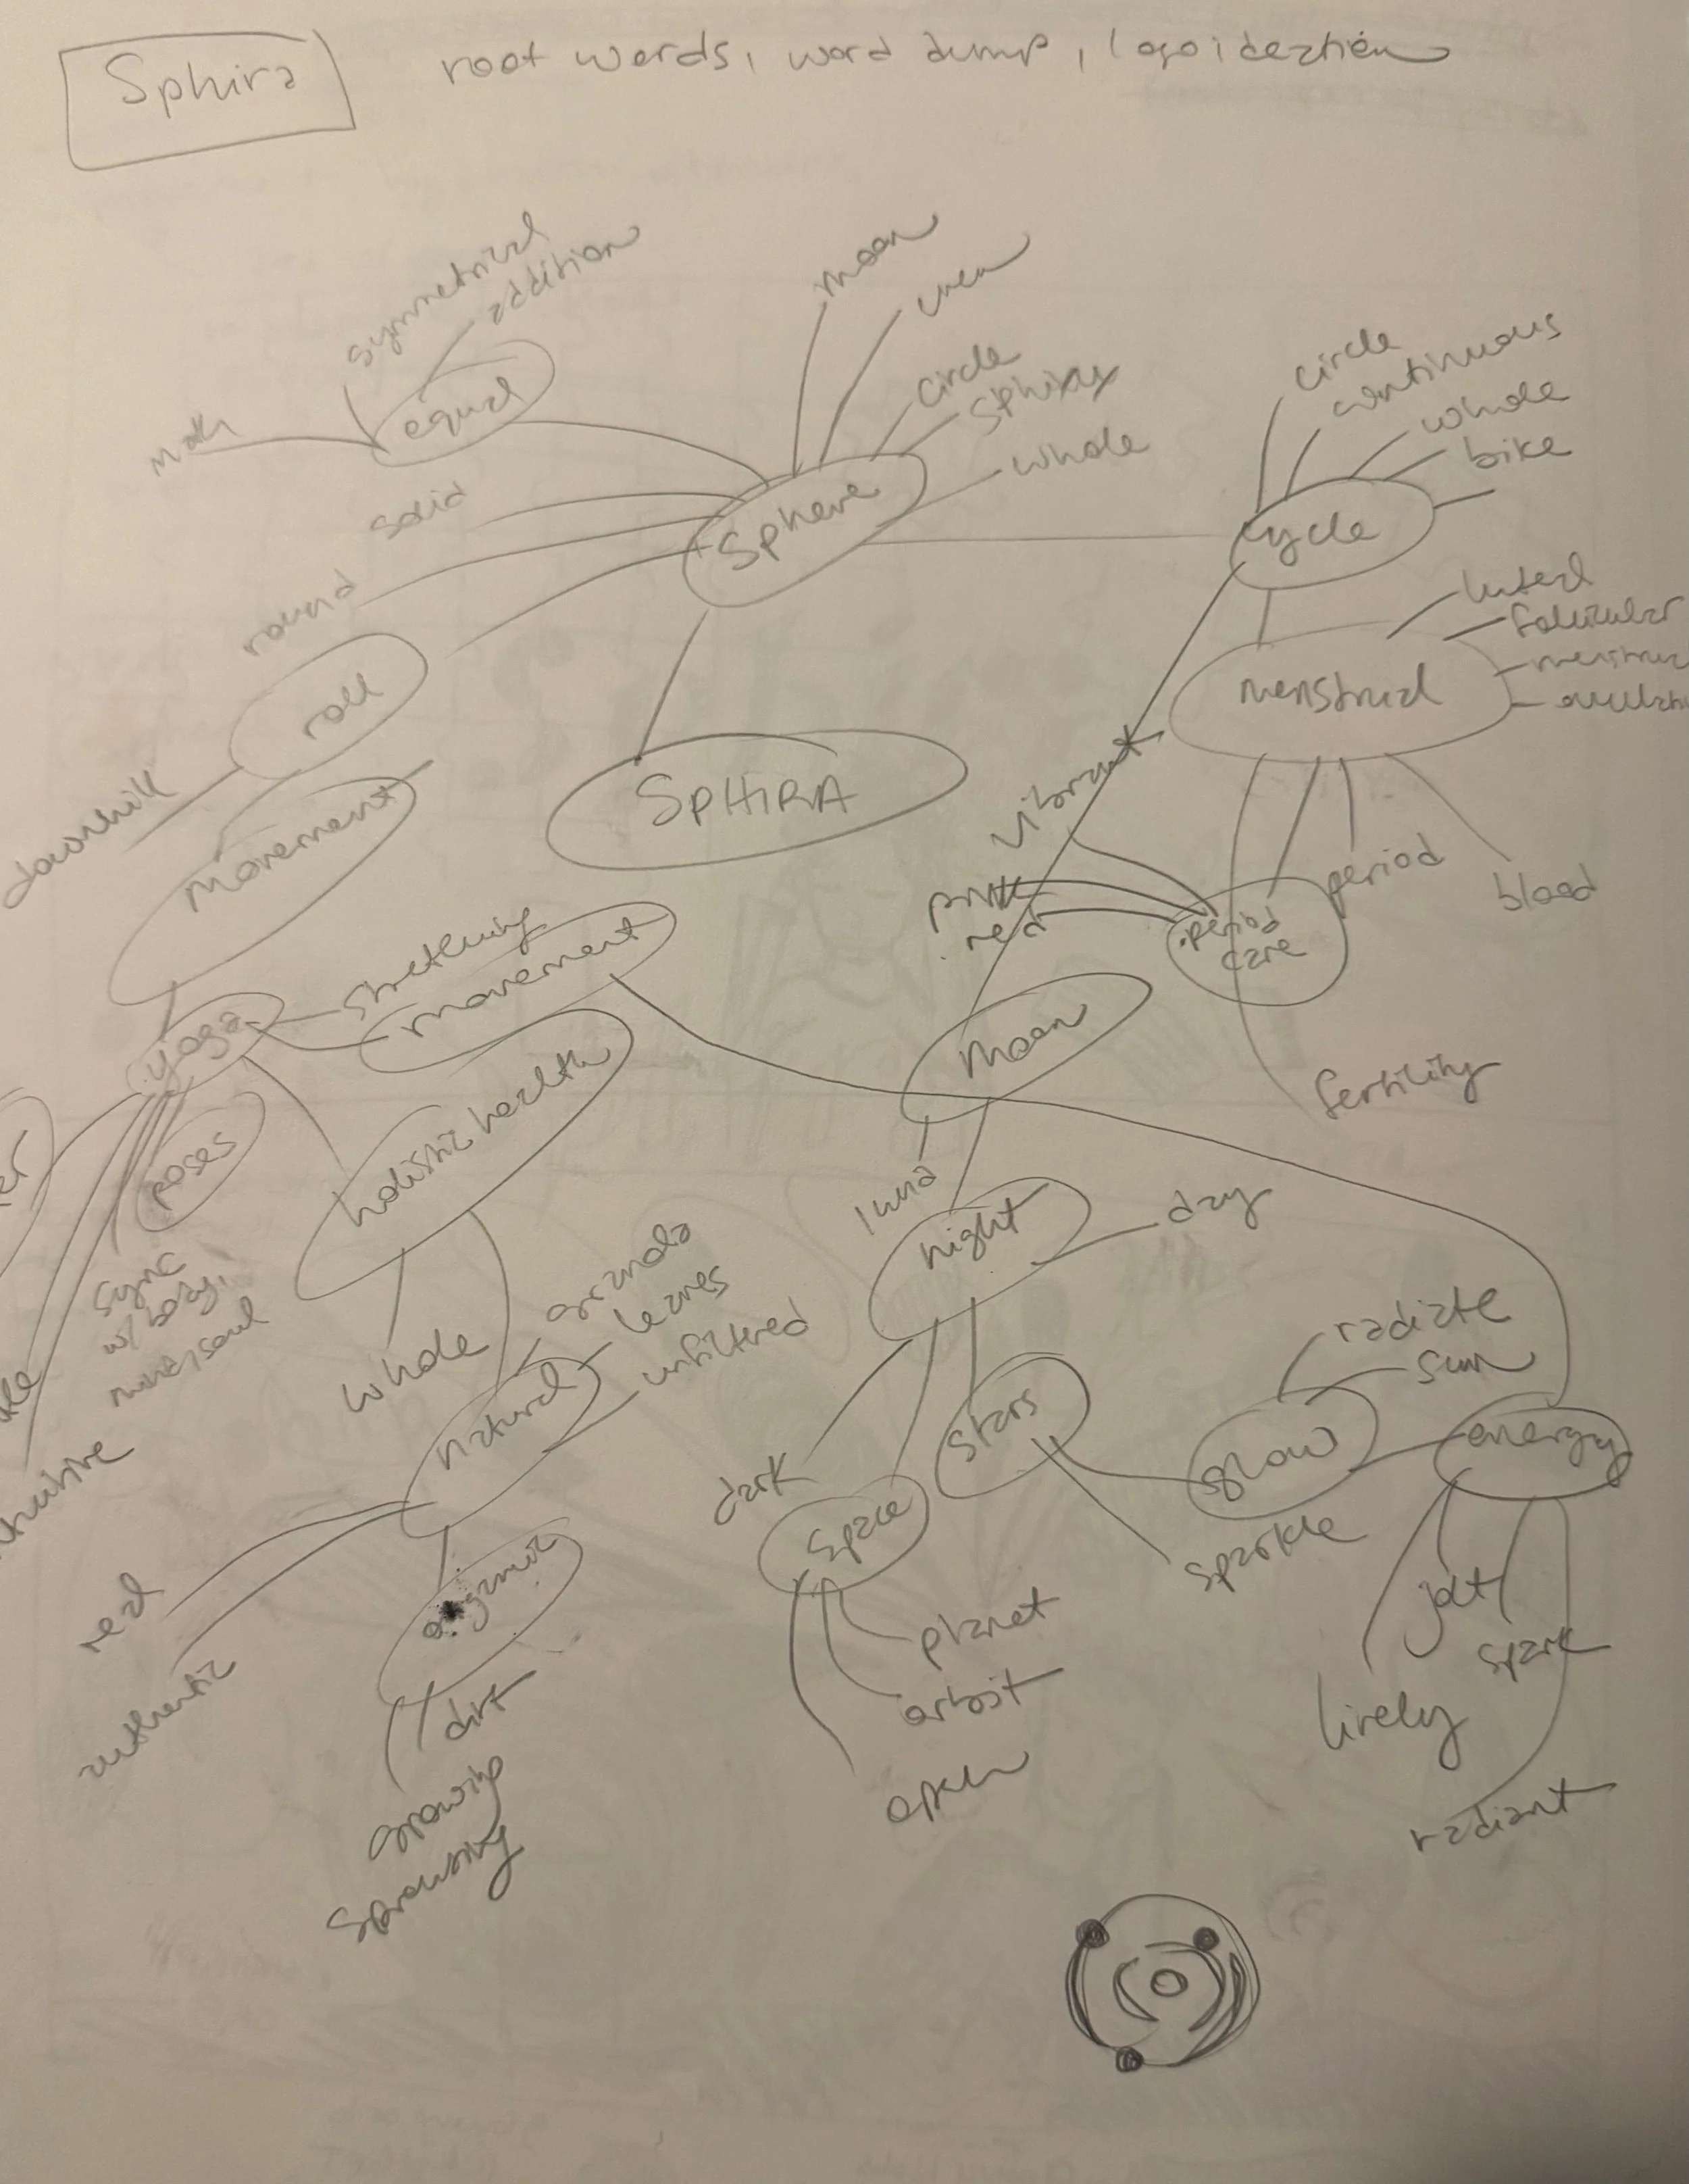 Sphira
root words, word dump, logo ideation
symmetrical
addition
moon
circle
whole
math
equal
solid
Sphere
circle
continuous
whole
bike
cycle
round
roll
luteal
menstrual
downhill
movement
SPHIRA
vibrant
period
blood
pink
red
period
care
stretching
movement
yoga
moon
fertility
poses
holistic health
luna
night
day
sync
w/ body,
mind, soul
whole
granola
leaves
unfiltered
natural
dark
stars
radiate
sun
glow
energy
space
sparkle
real
authentic
organic
planet
jolt
spark
dirt
orbit
lively
growing
open
radiant